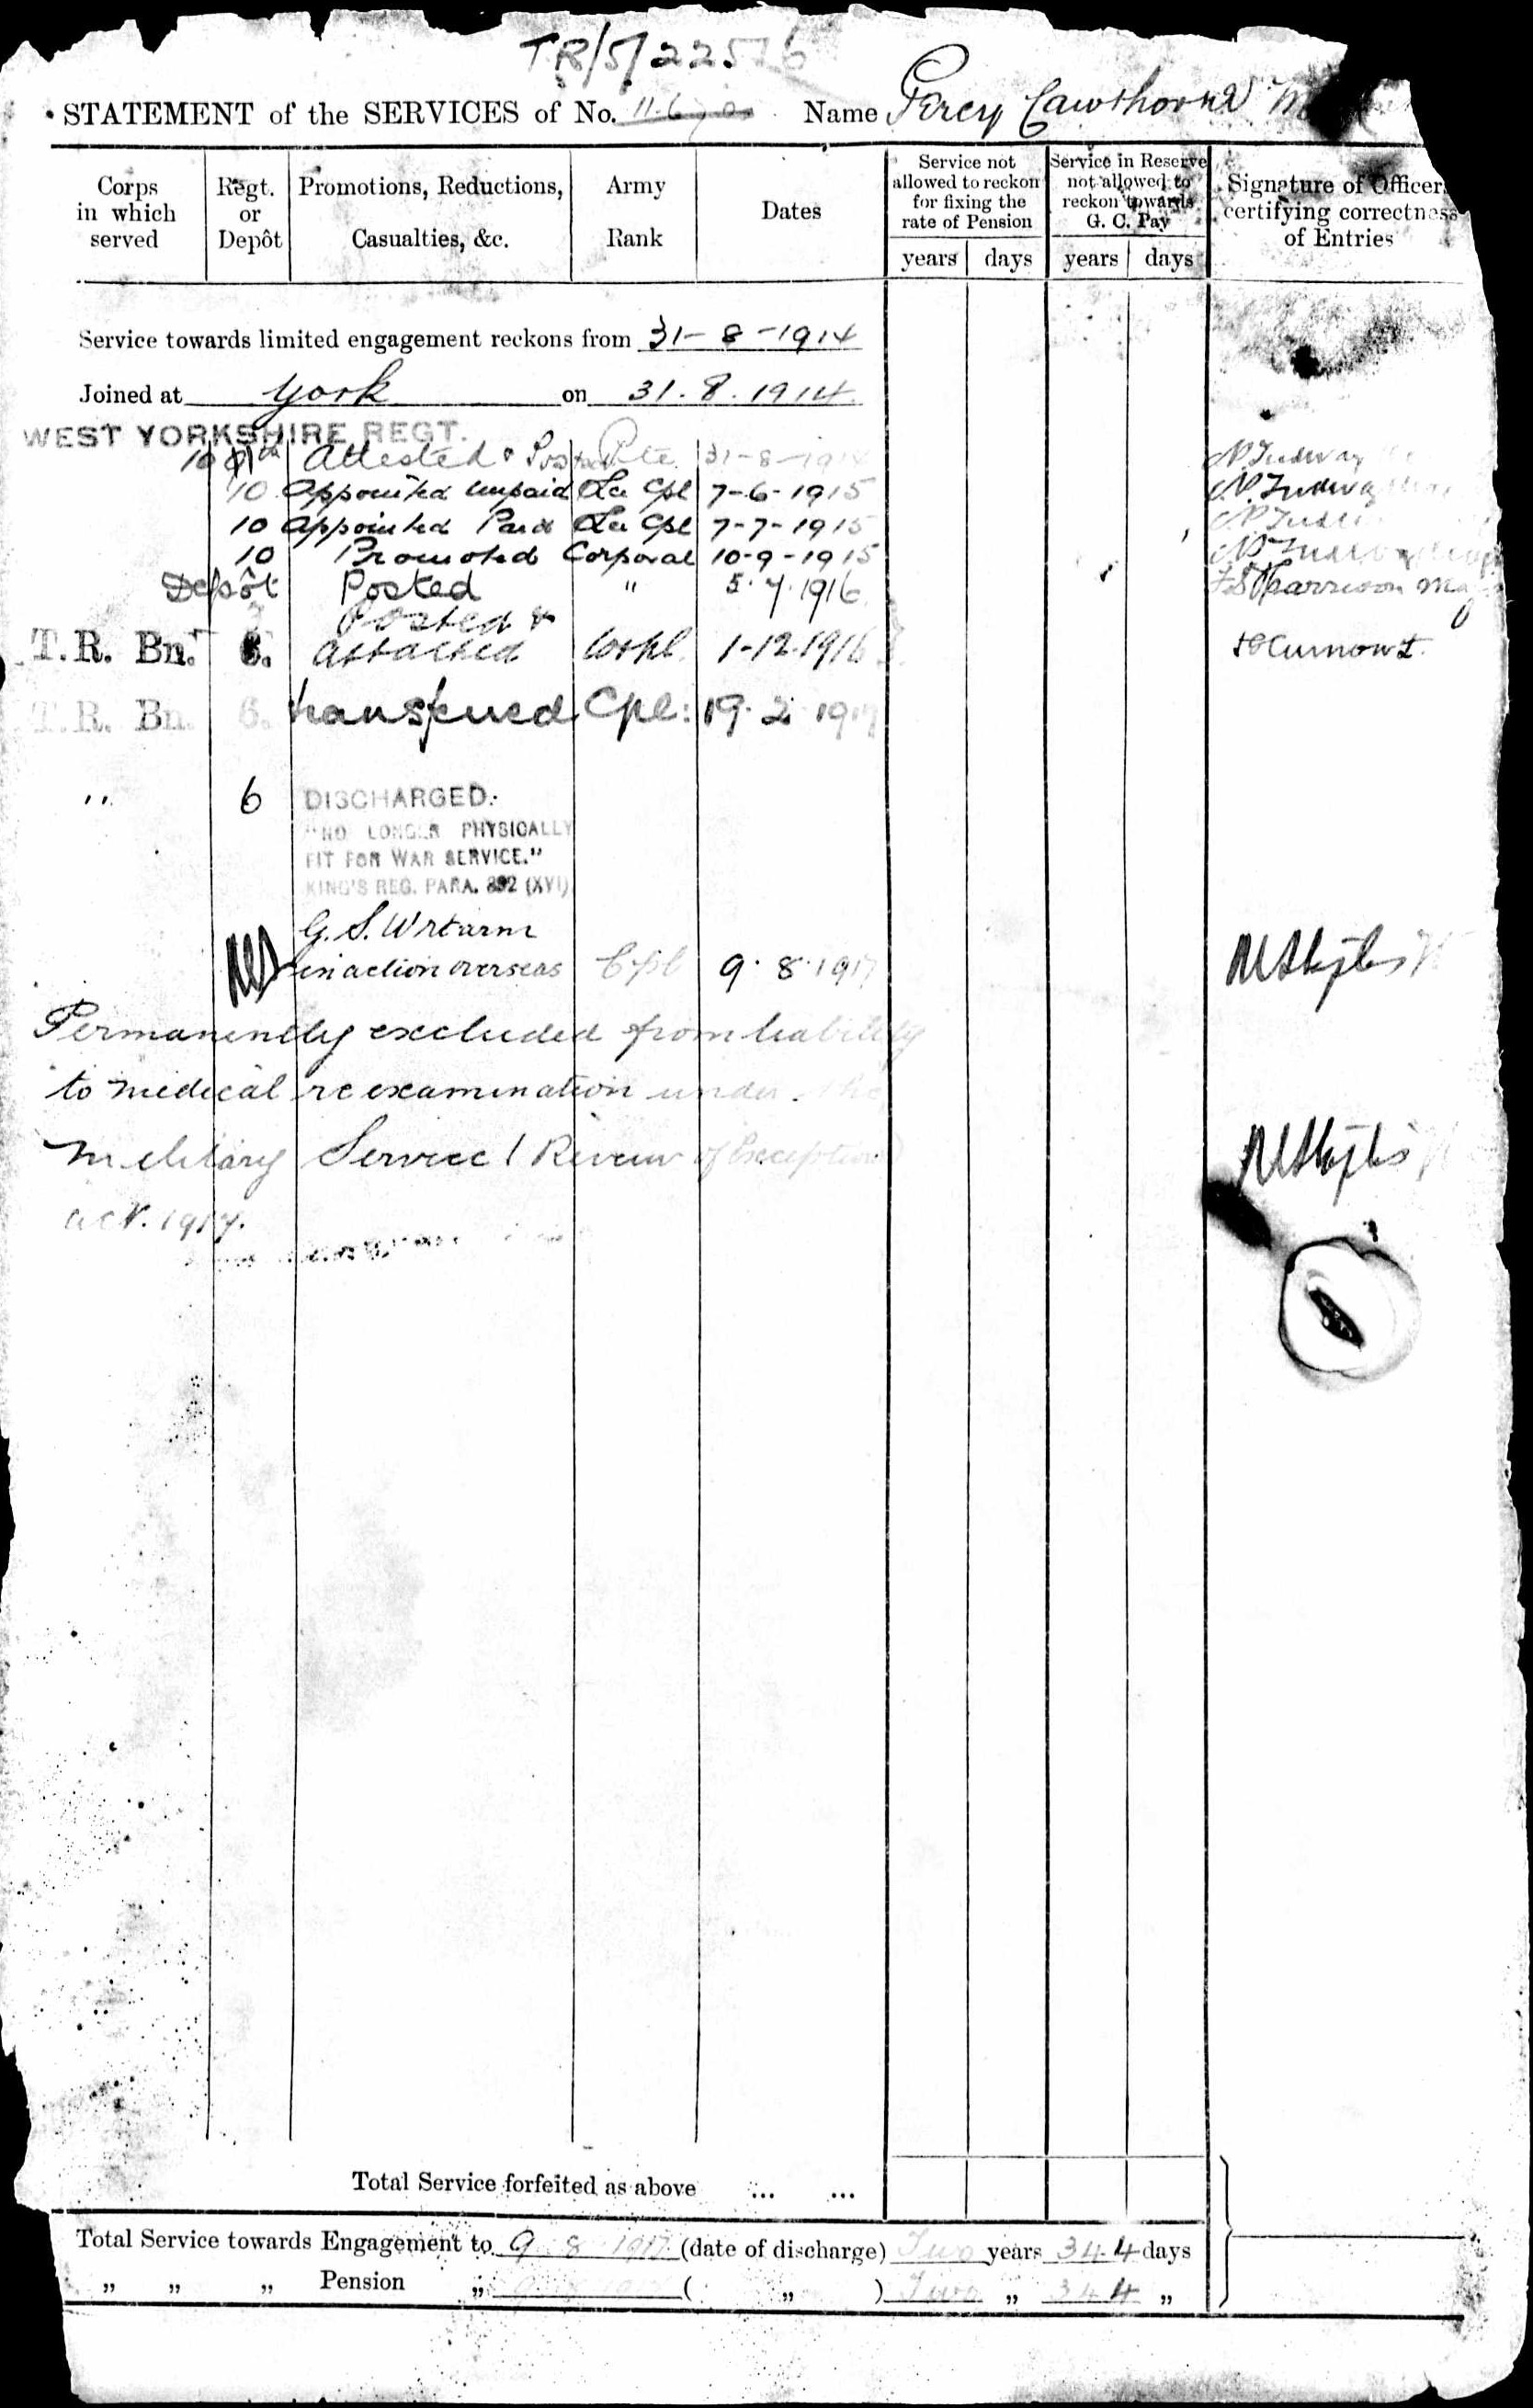 TR/5/22516
STATEMENT of the SERVICES of No. Name Percy Cawthorne
Corps in which served
Regt. or Depôt
Promotions, Reductions, Casualties, &c.
Army Rank
Dates
Service not allowed to reckon for fixing the rate of Pension
years days
Service in Reserve not allowed to reckon towards G. C. Pay
years days
Signature of Officers certifying correctness of Entries
Service towards limited engagement reckons from 31-8-1914
Joined at York on 31.8.1914
WEST YORKSHIRE REGT.
10 Attested & Posted Pte 31-8-1914
10 Appointed Unpaid Lce Cpl 7-6-1915
10 Appointed Paid Lce Cpl 7-7-1915
10 Promoted Corporal 10-9-1915
Depôt Posted " 5.7.1916 Harrison Maj
Posted &
T.R. Bn. 6. attached Corpl. 1-12-1916
T.R. Bn. 6. transferred Cpl: 19.2.1917
" 6 DISCHARGED.
"NO LONGER PHYSICALLY
FIT FOR WAR SERVICE."
KING'S REG. PARA. 392 (XVI)
G.S.W rt arm
in action overseas Cpl 9.8.1917
Permanently excluded from liability
to medical reexamination under the
Military Service (Review of Exceptions)
act. 1917.
Total Service forfeited as above ... ...
Total Service towards Engagement to 9 8 1917 (date of discharge) Two years 344 days
" " " Pension " ( " ) Two " 344 "